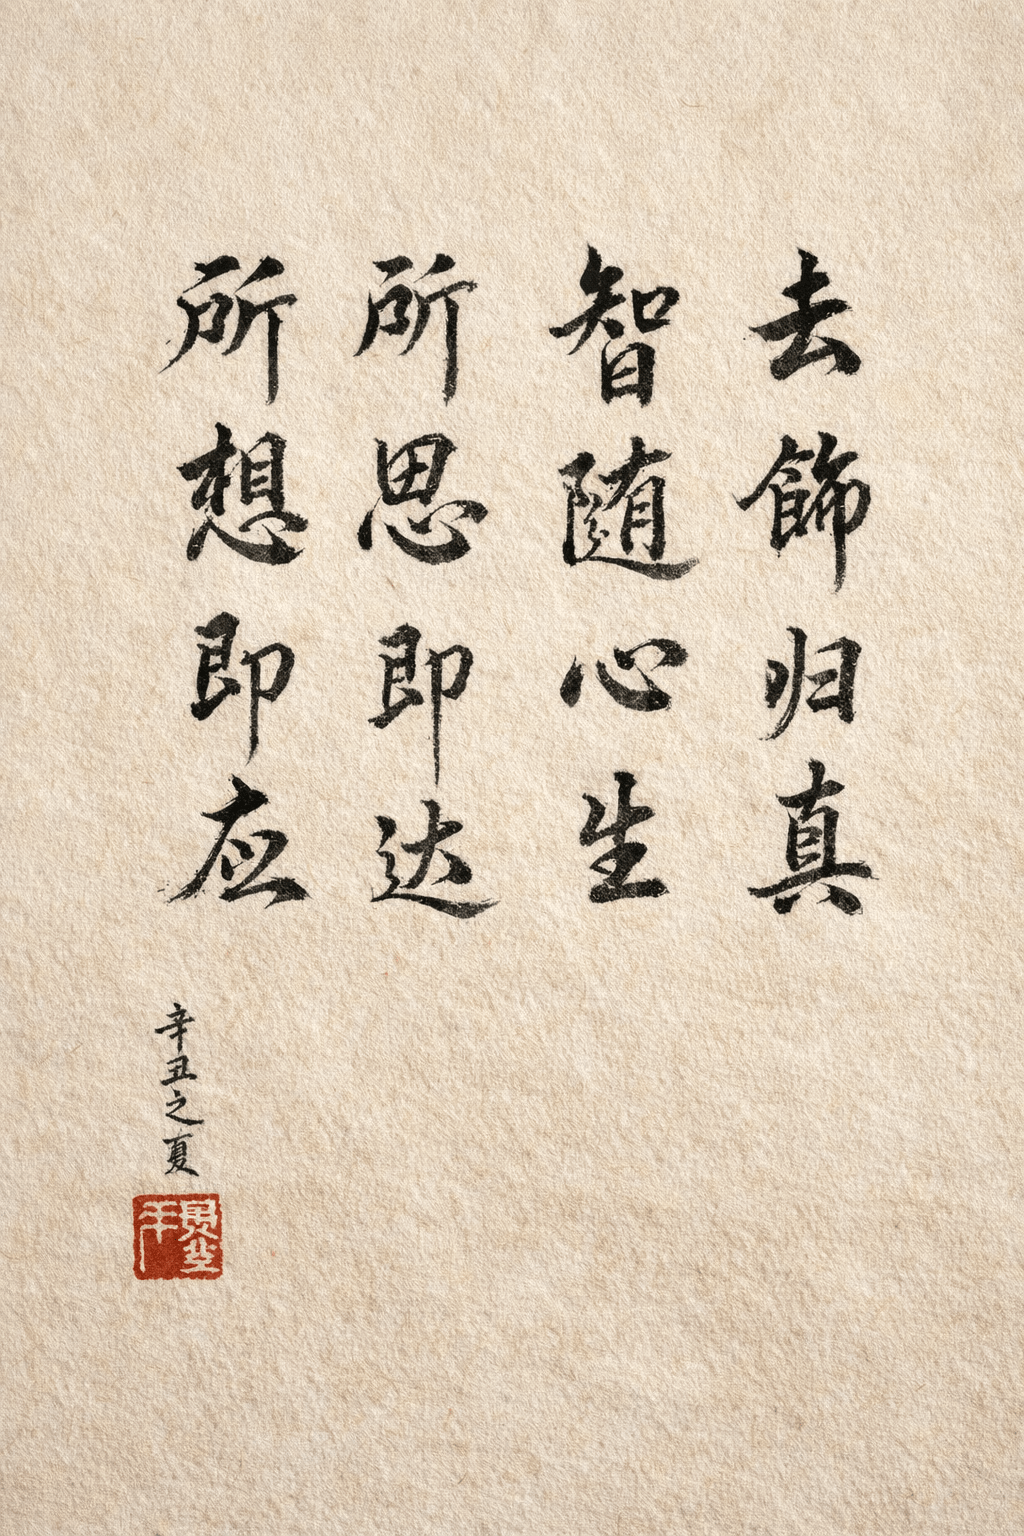 去飾归真
智随心生
所思即达
所想即应
辛丑之夏